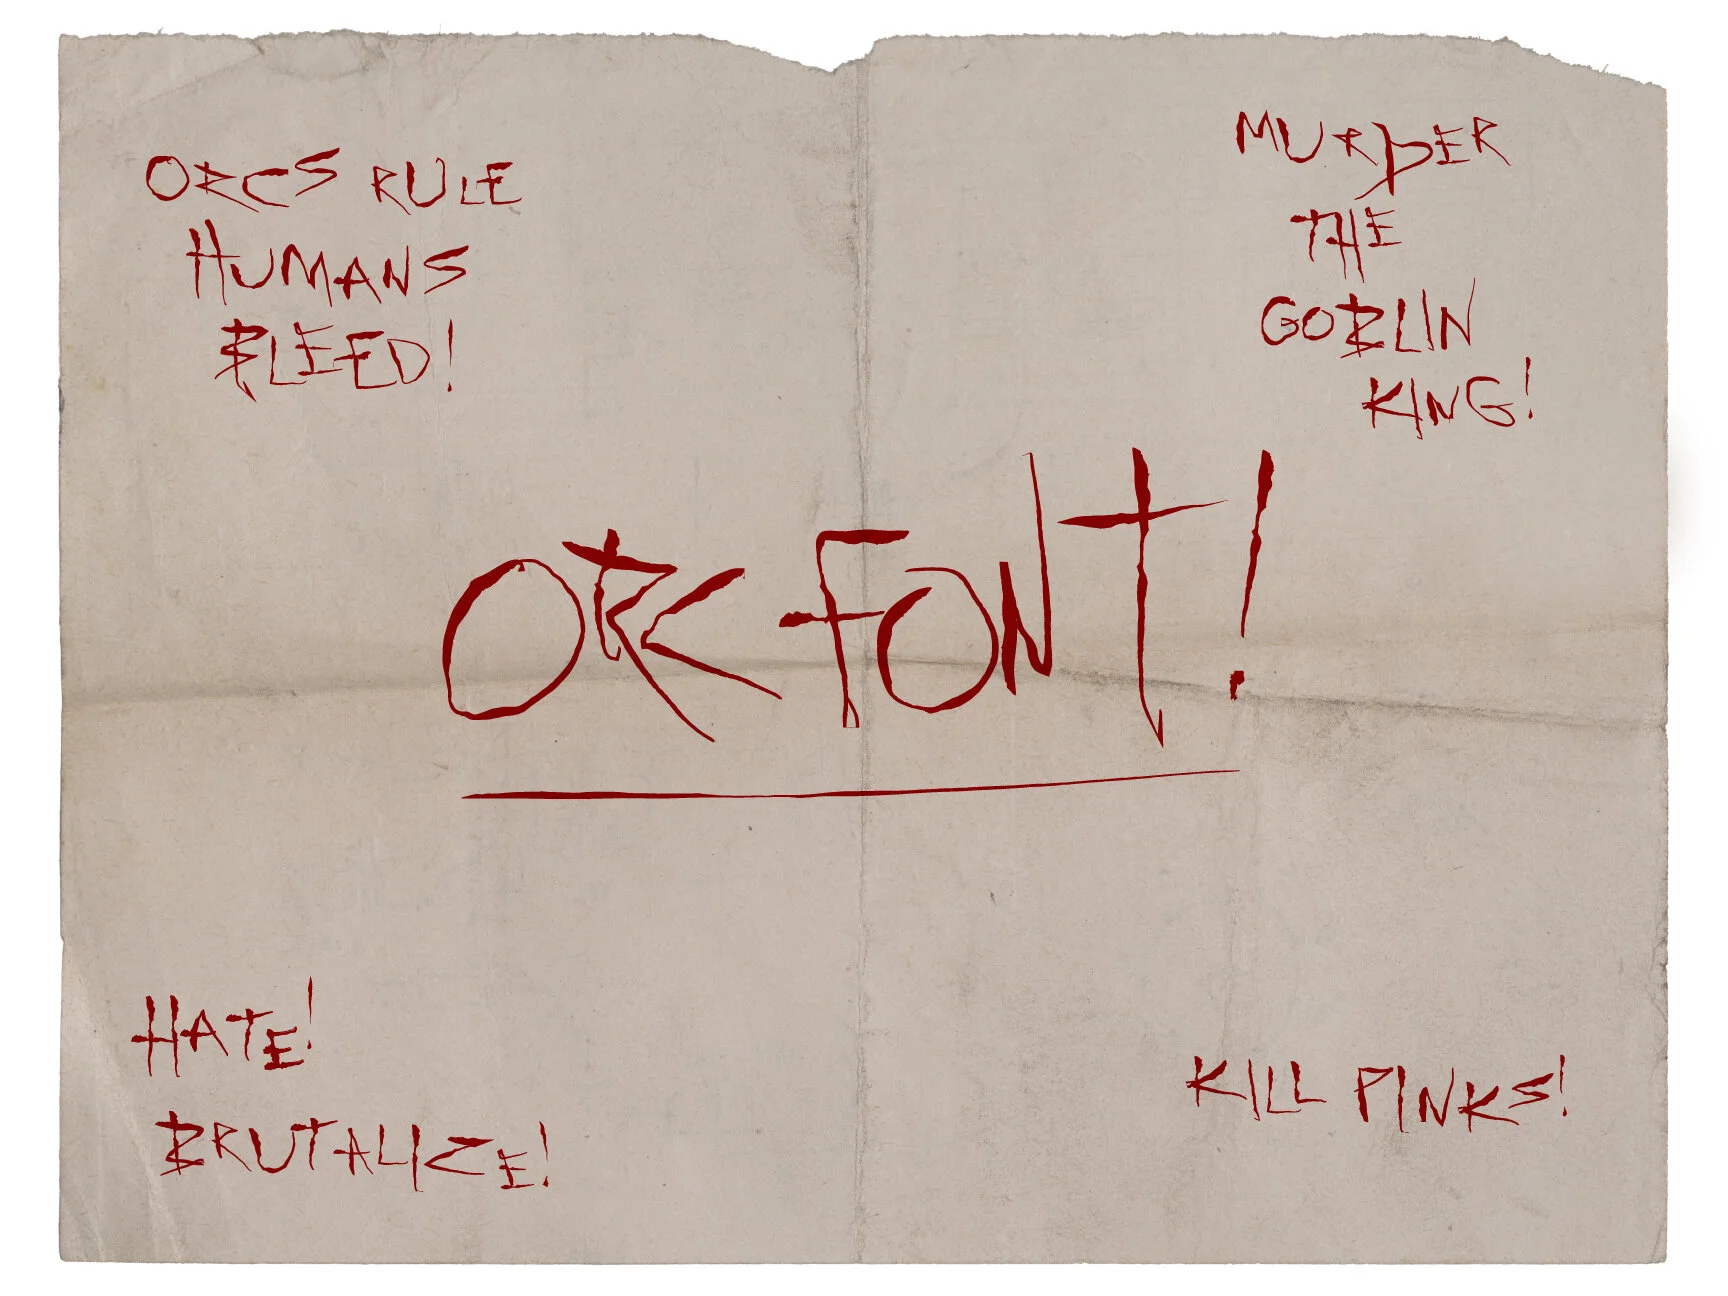 ORCS RULE
HUMANS
BLEED!
MURDER
THE
GOBLIN
KING!
ORC FONT!
HATE!
BRUTALIZE!
KILL PINKS!